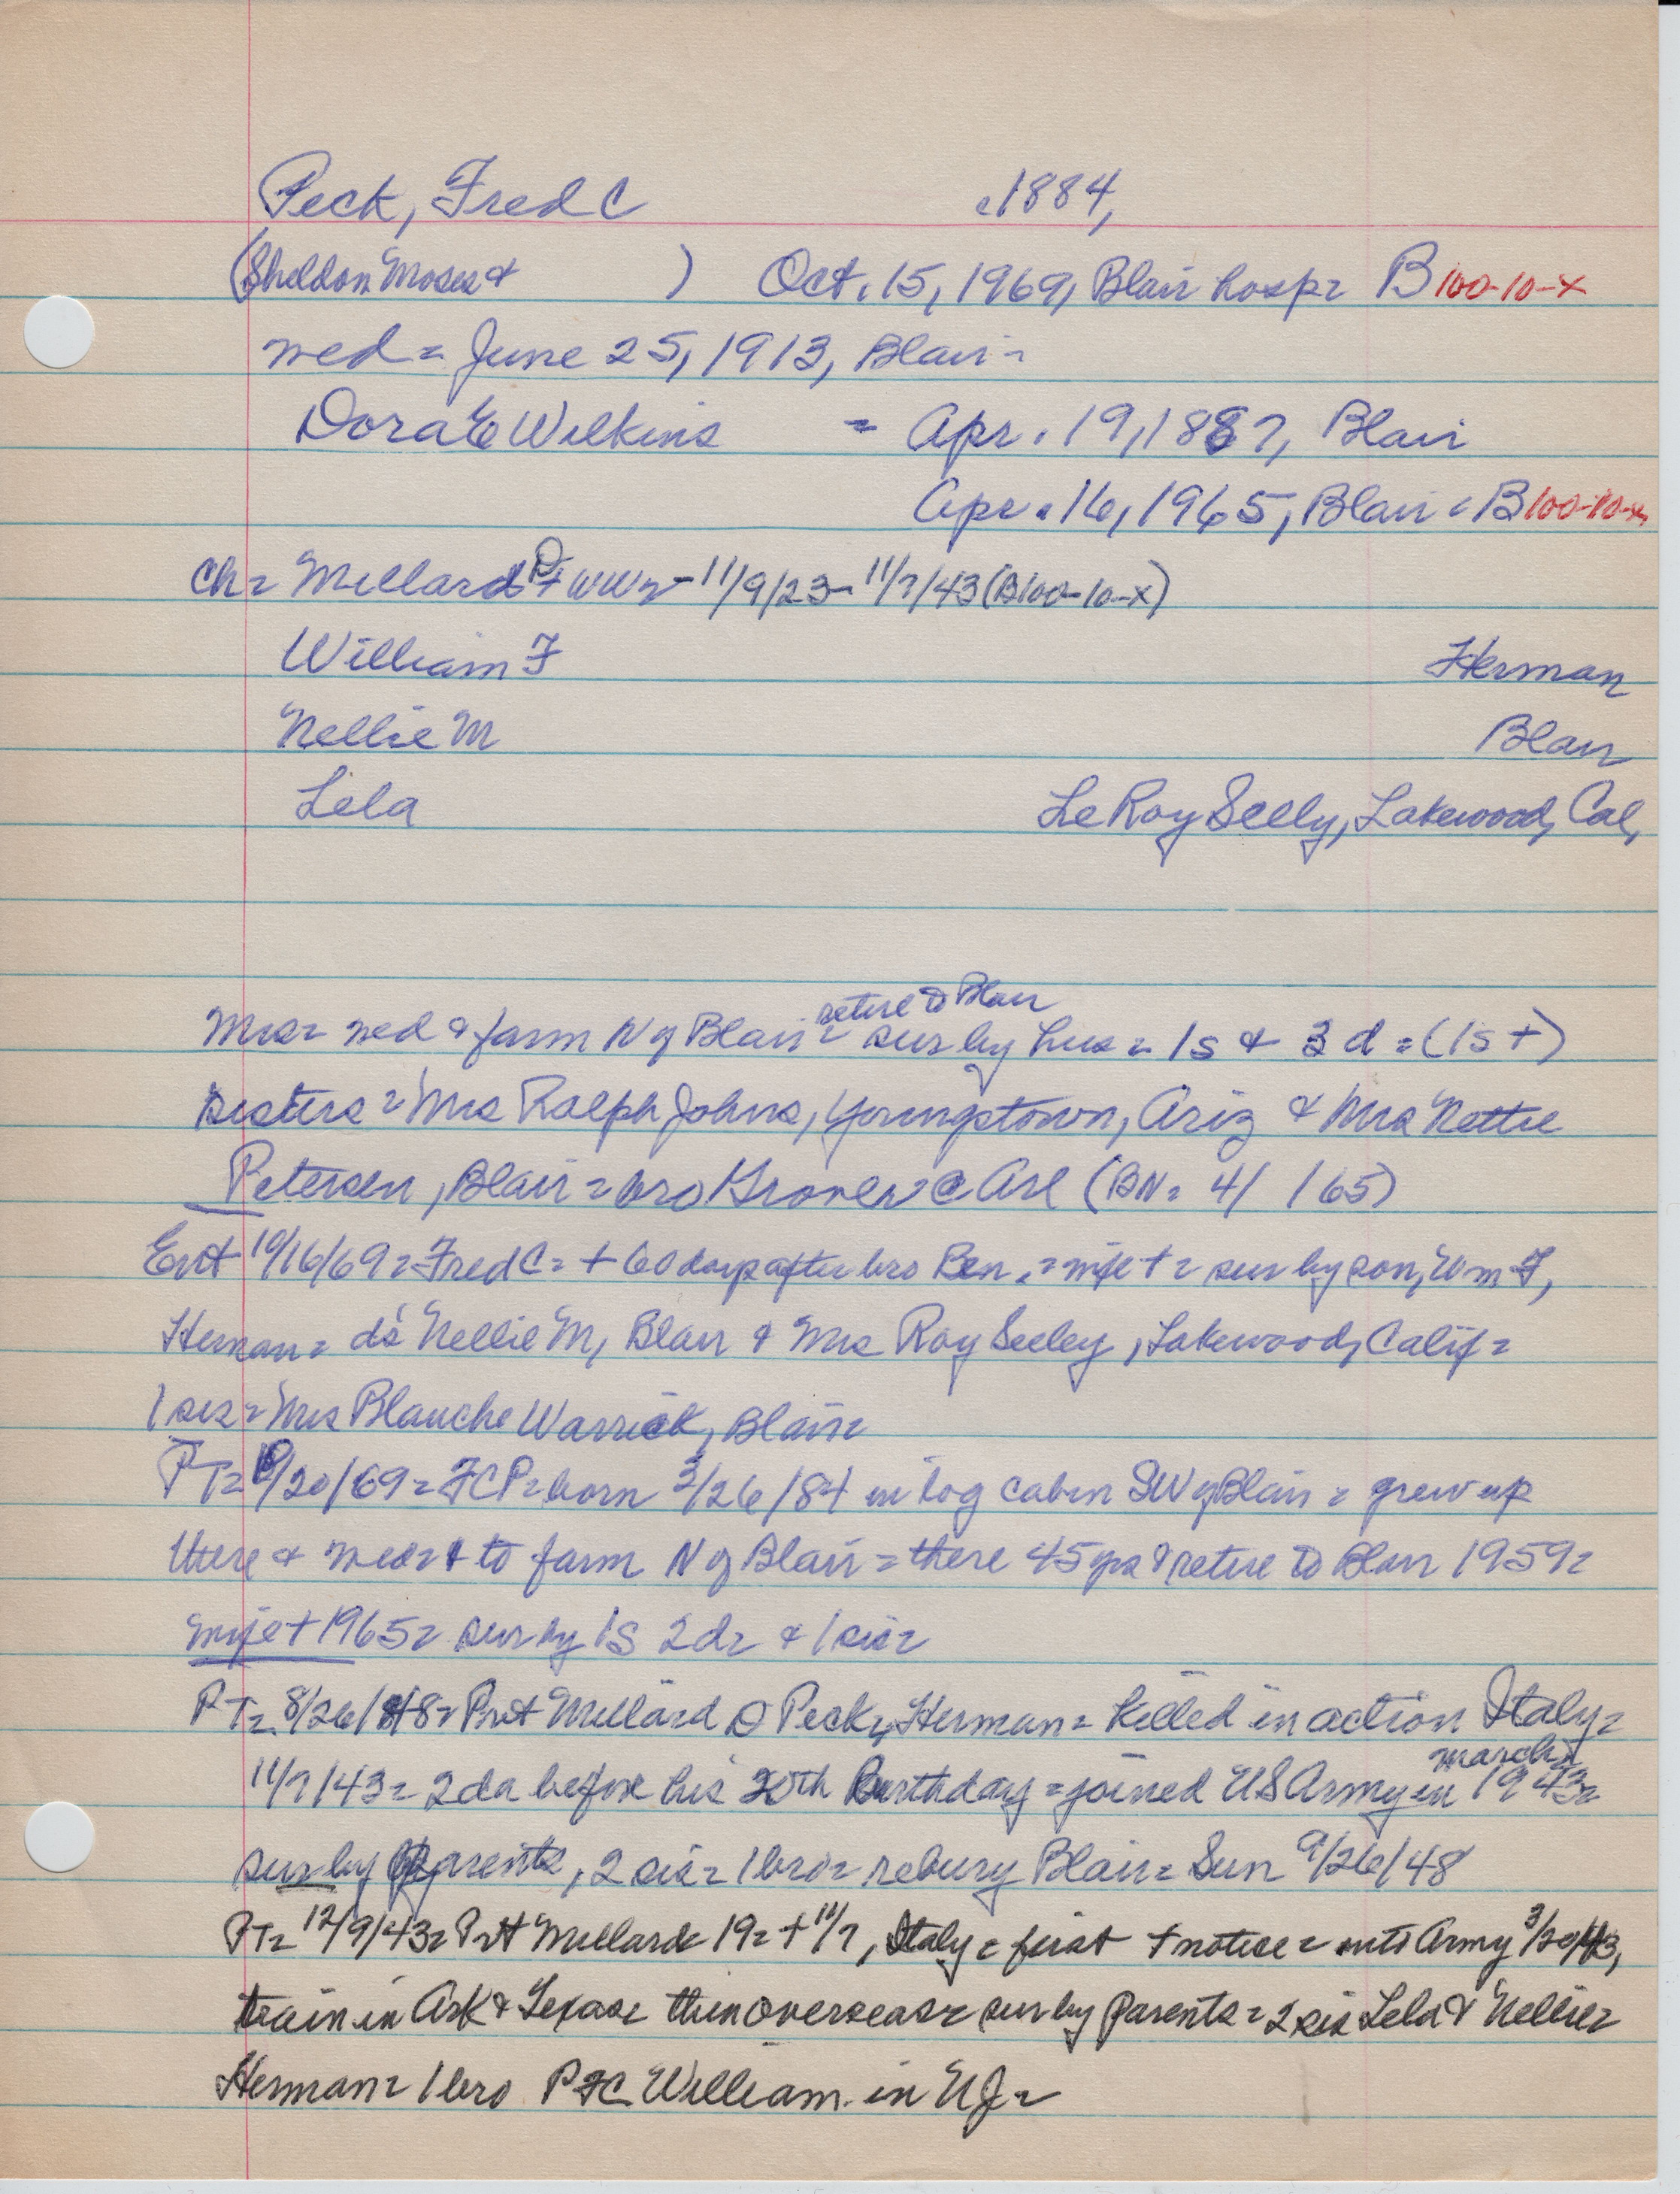 Peck, Fred C 1884,
(Sheldon Moses & ) Oct. 15, 1969, Blair hosp= B100-10-x
wed = June 25, 1913, Blair=
Dora E Wilkins = Apr. 19, 1887, Blair
Apr. 16, 1965, Blair = B100-10-x
ch= Millard D + WW2 - 11/9/23 - 11/7/43 (B100-10-x)
William F Herman
Nellie M Blair
Lela LeRoy Seely, Lakewood, Cal,
retire to Blair
Mrs= wed & farm N of Blair = sur by hus = 1s & 3 d = (1s +)
sisters = Mrs Ralph Johns, Youngstown, Ariz & Mrs Nettie
Petersen, Blair = bro Grover @ Arl (BN= 4/ /65)
Ent 10/16/69 = Fred C = + 60 days after bro Ben = wife + = sur by son, Wm F,
Herman = ds Nellie M, Blair & Mrs Roy Seeley, Lakewood, Calif =
1 sis = Mrs Blanche Warrick, Blair=
PT= 10/20/69 = FCP = born 3/26/84 in log cabin SW of Blair = grew up
there & wed = & to farm N of Blair = there 45 yrs & retire to Blair 1959=
wife + 1965= sur by 1s 2d= & 1 sis=
PT= 8/26/48= Pvt Millard D Peck, Herman= killed in action Italy=
march
11/7/43= 2 da before his 20th birthday = joined US Army in 1943=
sur by parents, 2 sis= 1 bro= rebury Blair= Sun 9/26/48
PT= 12/9/43= Pvt Millard= 19= + 11/7, Italy = first + notice = into Army 3/20/43,
train in Ark & Texas= then overseas= sur by parents= 2 sis Lela & Nellie=
Herman= 1 bro PFC William in NJ=